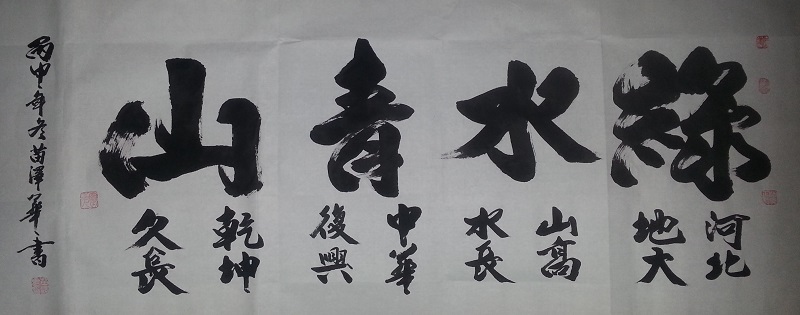 綠水青山
河北
地大
山高
水長
中華
復興
乾坤
久長
丙申年冬苗澤華書